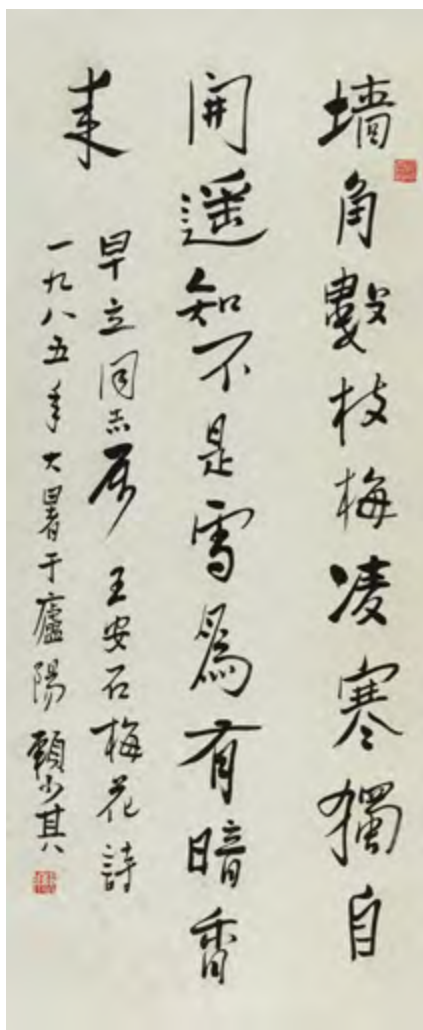 墙角數枝梅凌寒獨自
開遥知不是雪為有暗香
来
早立同志属 王安石梅花詩
一九八五年大暑于廬陽 賴少其